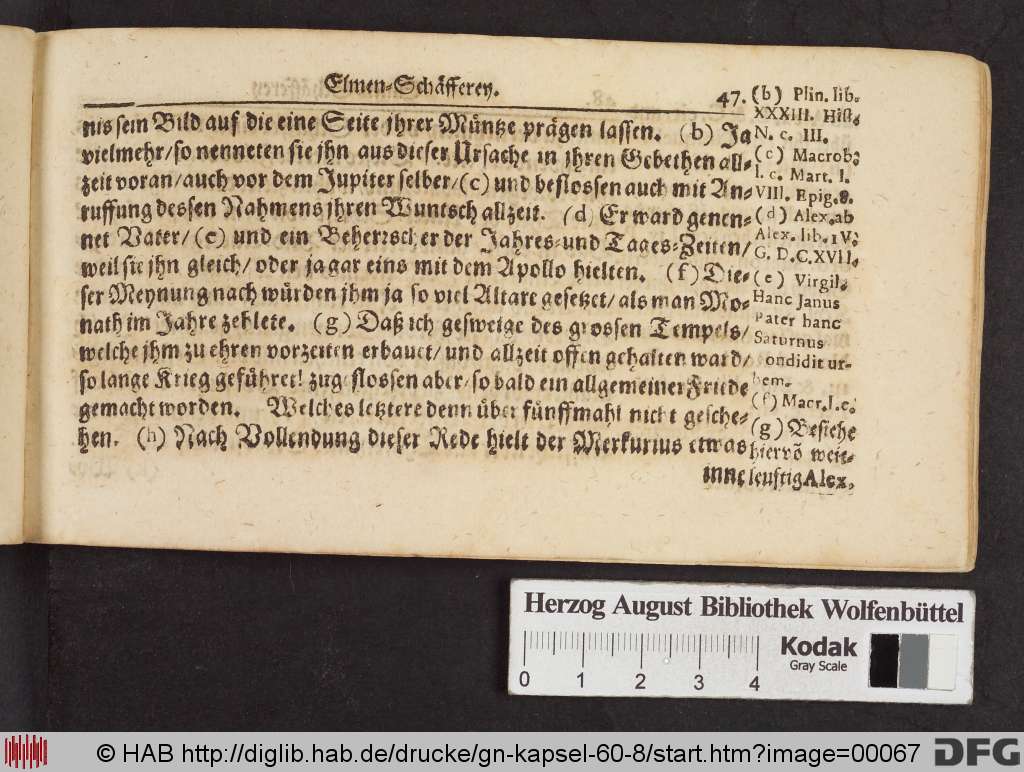 Elmen-Schäfferey.
47.
nis sein Bild auf die eine Seite jhrer Müntze prägen lassen. (b) Ja
vielmehr/ so nenneten sie jhn aus dieser Ursache in jhren Gebethen all-
zeit voran/ auch vor dem Jupiter selber/ (c) und beslossen auch mit An-
ruffung dessen Nahmens jhren Wuntsch allzeit. (d) Er ward genen-
net Vater/ (e) und ein Beherrscher der Jahres- und Tages-Zeiten/
weil sie jhn gleich/ oder ja gar eins mit dem Apollo hielten. (f) Die-
ser Meynung nach würden jhm ja so viel Altare gesetzet/ als man Mo-
nath im Jahre zehlete. (g) Daß ich gesweige des grossen Tempels/
welche jhm zu ehren vorzeiten erbauet/ und allzeit offen gehalten ward/
so lange Krieg geführet! zugeslossen aber/ so bald ein allgemeiner Friede
gemacht worden. Welches letztere denn über fünffmahl nicht gesche-
hen. (h) Nach Vollendung dieser Rede hielt der Merkurius etwas
inne
(b) Plin. lib.
XXXIII. Hist.
N. c. III.
(c) Macrob.
l. c. Mart. l.
VIII. Epig. 8.
(d) Alex. ab
Alex. lib. IV.
G. D. C. XVII.
(e) Virgil.
Hanc Janus
Pater hanc
Saturnus
condidit ur-
bem.
(f) Macr. l. c.
(g) Besiehe
hiervō weit-
leuftig Alex.
Herzog August Bibliothek Wolfenbüttel
Kodak
Gray Scale
0 1 2 3 4
© HAB http://diglib.hab.de/drucke/gn-kapsel-60-8/start.htm?image=00067
DFG